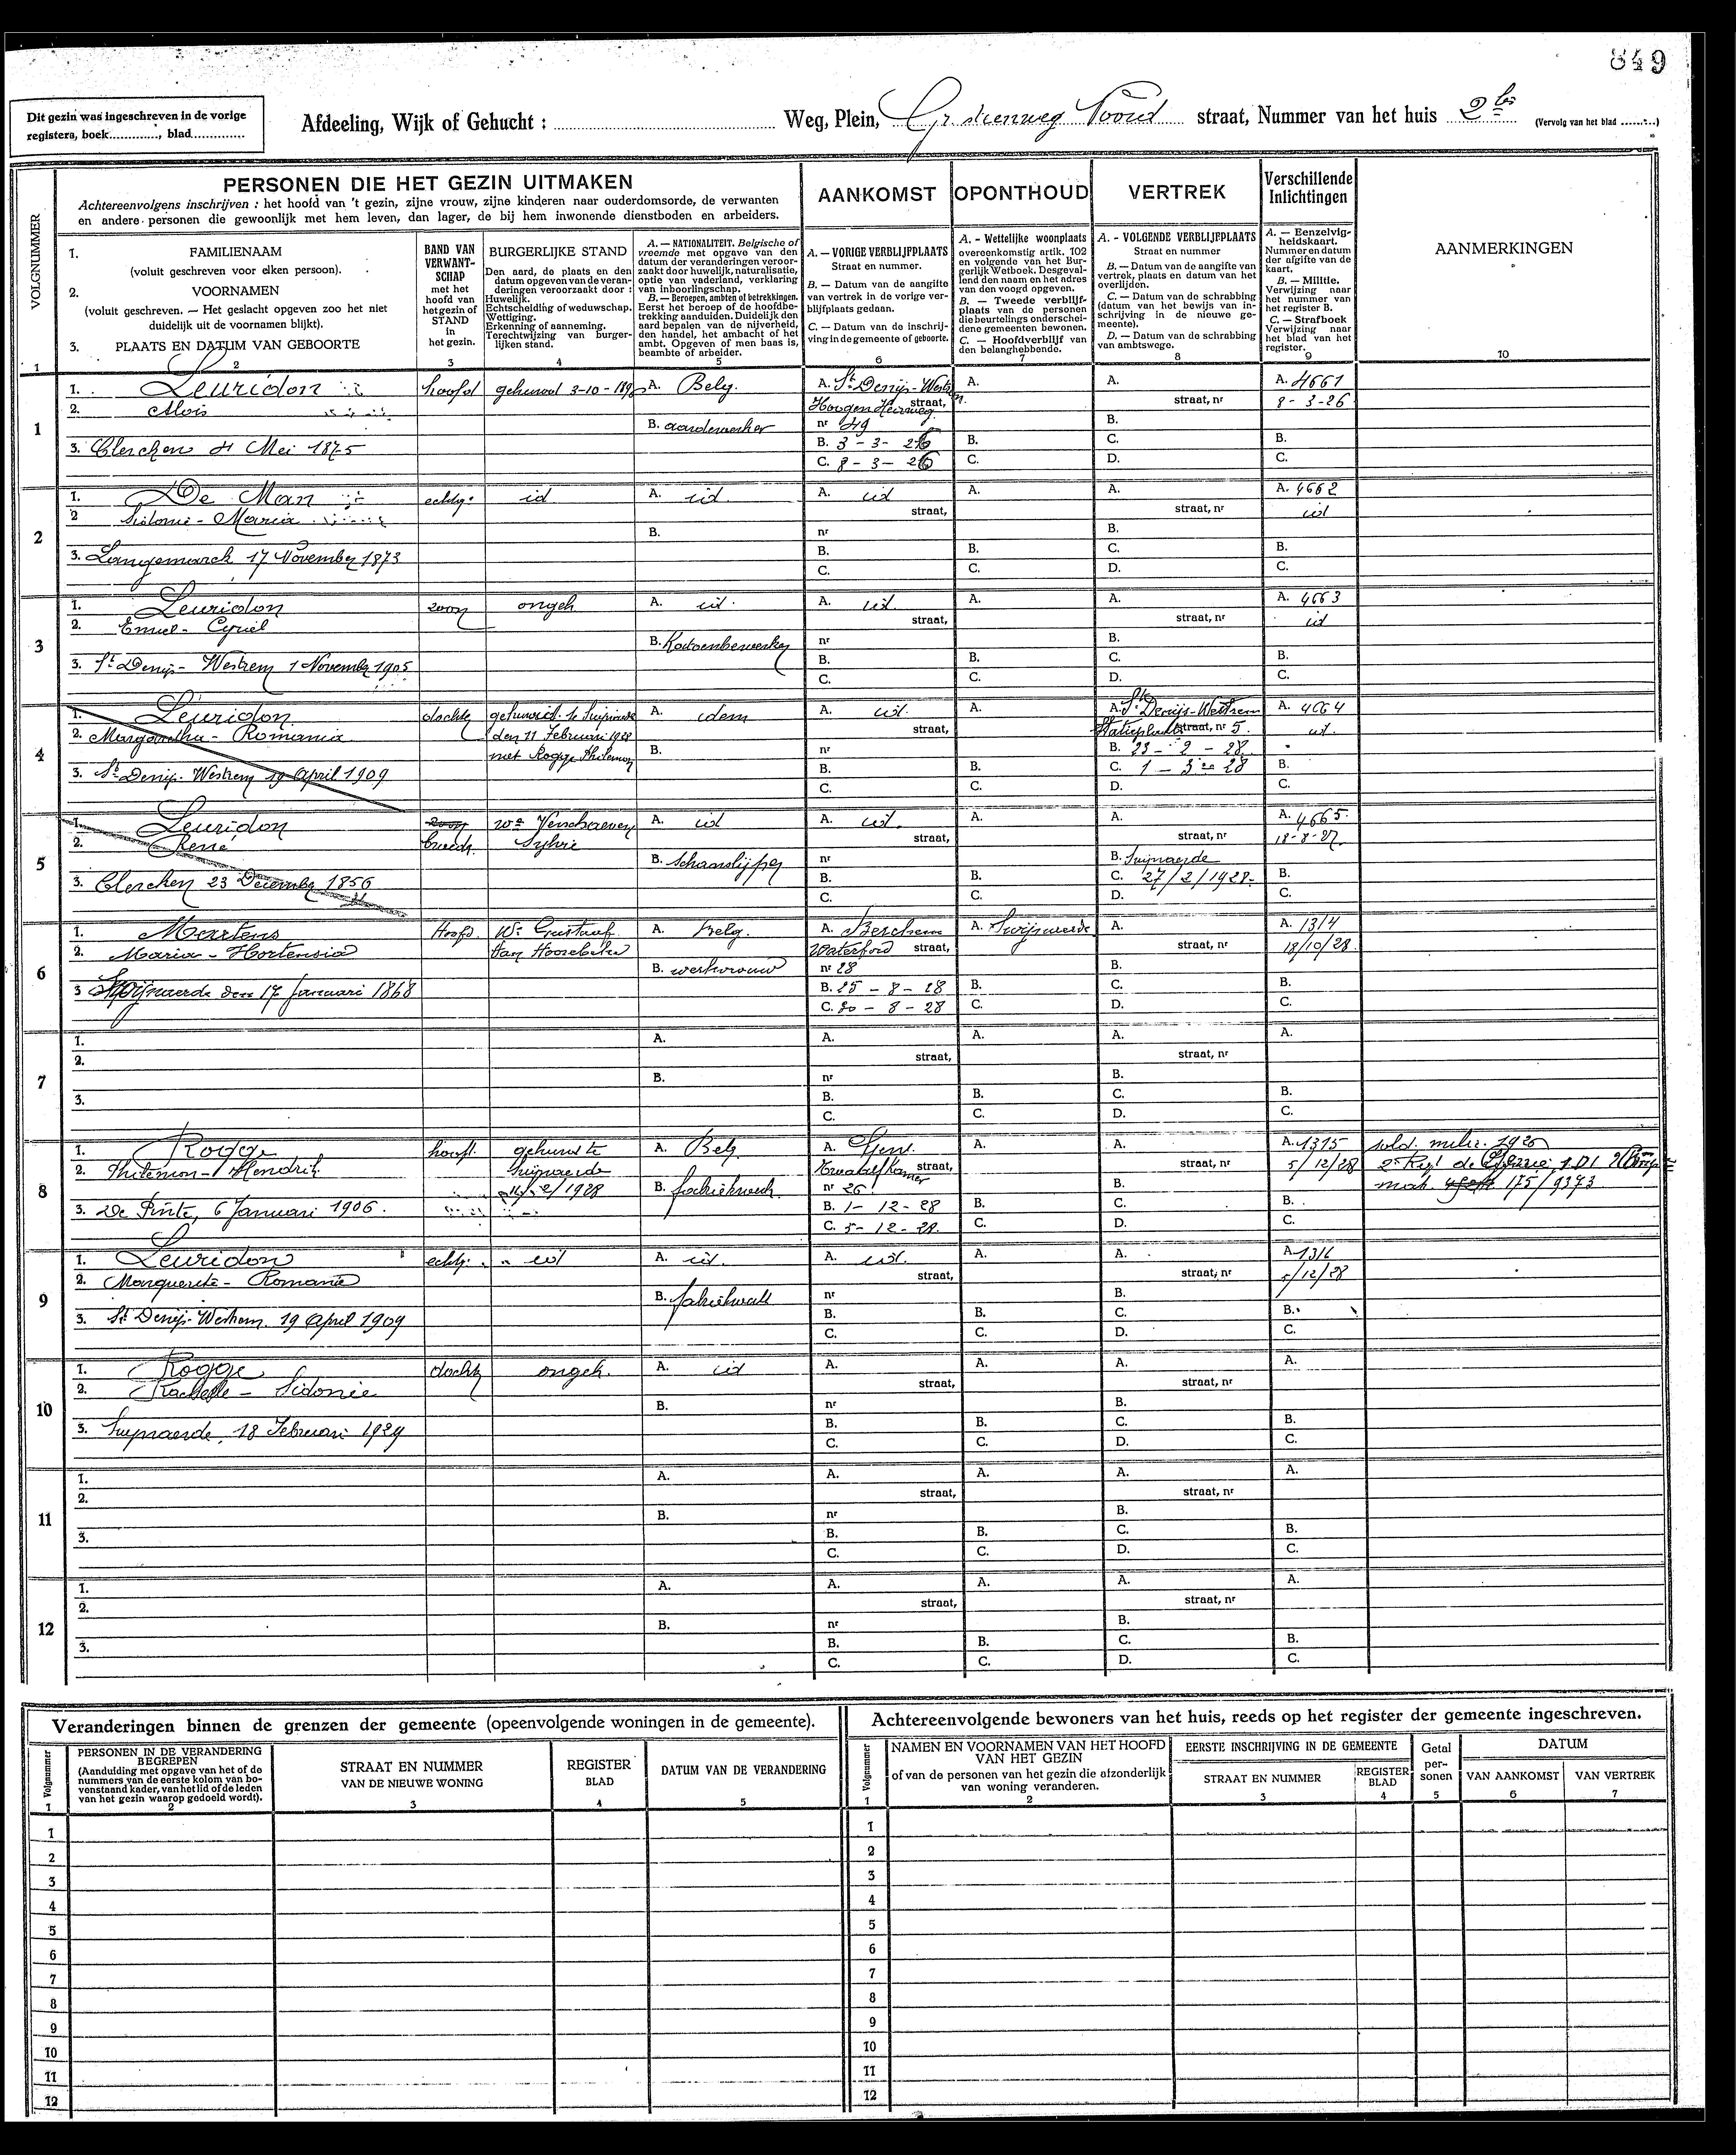 849
Dit gezin was ingeschreven in de vorige
registers, boek............, blad............
Afdeeling, Wijk of Gehucht : ........ Weg, Plein, Gr. steenweg Noord straat, Nummer van het huis 2bis (Vervolg van het blad ........)
VOLGNUMMER
PERSONEN DIE HET GEZIN UITMAKEN
Achtereenvolgens inschrijven : het hoofd van 't gezin, zijne vrouw, zijne kinderen naar ouderdomsorde, de verwanten
en andere personen die gewoonlijk met hem leven, dan lager, de bij hem inwonende dienstboden en arbeiders.
AANKOMST
OPONTHOUD
VERTREK
Verschillende
Inlichtingen
AANMERKINGEN
1. FAMILIENAAM
(voluit geschreven voor elken persoon).
2. VOORNAMEN
(voluit geschreven. — Het geslacht opgeven zoo het niet
duidelijk uit de voornamen blijkt).
3. PLAATS EN DATUM VAN GEBOORTE
BAND VAN
VERWANT-
SCHAP
met het
hoofd van
het gezin of
STAND
in
het gezin.
BURGERLIJKE STAND
Den aard, de plaats en den
datum opgeven van de veran-
deringen veroorzaakt door :
Huwelijk.
Echtscheiding of weduwschap.
Wettiging.
Erkenning of aanneming.
Terechtwijzing van burger-
lijken stand.
A. — NATIONALITEIT. Belgische of
vreemde met opgave van den
datum der veranderingen veroor-
zaakt door huwelijk, naturalisatie,
optie van vaderland, verklaring
van inboorlingschap.
B. — Beroepen, ambten of betrekkingen.
Eerst het beroep of de hoofdbe-
trekking aanduiden. Duidelijk den
aard bepalen van de nijverheid,
den handel, het ambacht of het
ambt. Opgeven of men baas is,
beambte of arbeider.
A. — VORIGE VERBLIJFPLAATS
Straat en nummer.
B. — Datum van de aangifte
van vertrek in de vorige ver-
blijfplaats gedaan.
C. — Datum van de inschrij-
ving in de gemeente of geboorte.
A. - Wettelijke woonplaats
overeenkomstig artik. 102
en volgende van het Bur-
gerlijk Wetboek. Desgeval-
lend den naam en het adres
van den voogd opgeven.
B. — Tweede verblijf-
plaats van de personen
die beurtelings onderschei-
dene gemeenten bewonen.
C. — Hoofdverblijf van
den belanghebbende.
A. - VOLGENDE VERBLIJFPLAATS
Straat en nummer
B. — Datum van de aangifte van
vertrek, plaats en datum van het
overlijden.
C. — Datum van de schrabbing
(datum van het bewijs van in-
schrijving in de nieuwe ge-
meente).
D. — Datum van de schrabbing
van ambtswege.
A. — Eenzelvig-
heidskaart.
Nummer en datum
der afgifte van de
kaart.
B. — Militie.
Verwijzing naar
het nummer van
het register B.
C. — Strafboek
Verwijzing naar
het blad van het
register.
1 2 3 4 5 6 7 8 9 10
1
1. Leuridon hoofd gehuwd 3-10-189 A. Belg. A. St Denijs-Westrem A. A. A. 4661
2. Alois Hoogen Heirweg straat, straat, nr 8-3-26
B. aardewerker nr 49 B.
3. Clercken 4 Mei 1875 B. 3-3-26 B. C. B.
C. 8-3-26 C. D. C.
2
1. De Man echtg. id A. id. A. id A. A. A. 4662
2 Sidonie-Maria straat, straat, nr id
B. nr B.
3. Langemarck 17 November 1873 B. B. C. B.
C. C. D. C.
3
1. Leuridon zoon ongeh A. id. A. id. A. A. A. 4663
2. Emiel-Cyriel straat, straat, nr id
B. Katoenbewerker nr B.
3. St Denijs-Westrem 1 November 1905 B. B. C. B.
C. C. D. C.
4
1. Leuridon dochter gehuwd te Swijnaerde A. idem A. id. A. A. St Denijs-Westrem A. 4664
2. Margaretha-Romania den 11 Februari 1928 straat, Statieplaats straat, nr 5. id.
met Rogge Philemon B. nr B. 23-2-28
3. St Denijs-Westrem 19 April 1909 B. B. C. 1-3-28 B.
C. C. D. C.
5
1. Leuridon zoon we Verschaeren A. id A. id. A. A. A. 4665.
2. René broeder Sylvie straat, straat, nr 18-8-27
B. Schaarslijper nr B. Swijnaerde
3. Clercken 23 December 1856 B. B. C. 27/2/1928- B.
C. C. D. C.
6
1. Martens Hoofd We Gustaaf A. belg. A. Berchem A. Swijnaerde A. A. 1314
2. Maria-Hortensia Van Hoorebeke Waterford straat, straat, nr 18/10/28
B. werkvrouw nr 28 B.
3 Swijnaerde den 17 Januari 1868 B. 25-8-28 B. C. B.
C. 30-8-28 C. D. C.
7
1. A. A. A. A. A.
2. straat, straat, nr
B. nr B.
3. B. B. C. B.
C. C. D. C.
8
1. Rogge hoofd. gehuwd te A. Belg A. Gent. A. A. A. 1315 sold. milic. 1926
2. Philemon-Hendrik Swijnaerde straat, straat, nr 5/12/28
11/2/1928 B. fabriekwerk. nr 26. B. mat. 175/9373
3. De Pinte, 6 Januari 1906. B. 1-12-28 B. C. B.
C. 5-12-28. C. D. C.
9
1. Leuridon echtg. id A. id. A. id. A. A. A. 1316
2. Marguerite-Romanie straat, straat, nr 5/12/28
B. fabriekwerk nr B.
3. St Denijs-Westrem. 19 April 1909 B. B. C. B.
C. C. D. C.
10
1. Rogge dochter ongeh. A. id A. A. A. A.
2. Rachelle-Sidonie straat, straat, nr
B. nr B.
3. Swijnaerde, 18 Februari 1929 B. B. C. B.
C. C. D. C.
11
1. A. A. A. A. A.
2. straat, straat, nr
B. nr B.
3. B. B. C. B.
C. C. D. C.
12
1. A. A. A. A. A.
2. straat, straat, nr
B. nr B.
3. B. B. C. B.
C. C. D. C.
Veranderingen binnen de grenzen der gemeente (opeenvolgende woningen in de gemeente).
Volgnummer
PERSONEN IN DE VERANDERING
BEGREPEN
(Aanduiding met opgave van het of de
nummers van de eerste kolom van bo-
venstaand kader, van het lid of de leden
van het gezin waarop gedoeld wordt).
STRAAT EN NUMMER
VAN DE NIEUWE WONING
REGISTER
BLAD
DATUM VAN DE VERANDERING
1 2 3 4 5
1
2
3
4
5
6
7
8
9
10
11
12
Achtereenvolgende bewoners van het huis, reeds op het register der gemeente ingeschreven.
Volgnummer
NAMEN EN VOORNAMEN VAN HET HOOFD
VAN HET GEZIN
of van de personen van het gezin die afzonderlijk
van woning veranderen.
EERSTE INSCHRIJVING IN DE GEMEENTE
STRAAT EN NUMMER
REGISTER
BLAD
Getal
per-
sonen
DATUM
VAN AANKOMST
VAN VERTREK
1 2 3 4 5 6 7
1
2
3
4
5
6
7
8
9
10
11
12